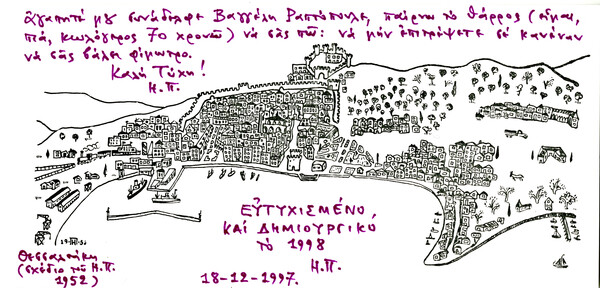 Ἀγαπητέ μου συνάδελφε Βαγγέλη Ραπτόπουλε, παίρνω τὸ θάρρος (εἶμαι,
πιά, κωλόγερος 70 χρονῶ) νὰ σᾶς πῶ: νὰ μὴν ἐπιτρέψετε σὲ κανέναν
νὰ σᾶς βάλει φίμωτρο.
Καλὴ Τύχη!
Η.Π.
ΕΥΤΥΧΙΣΜΕΝΟ,
ΚΑΙ ΔΗΜΙΟΥΡΓΙΚΟ
τὸ 1998
Η.Π.
18-12-1997.
Θεσσαλονίκη
(σχέδιο τοῦ Η.Π.
1952)